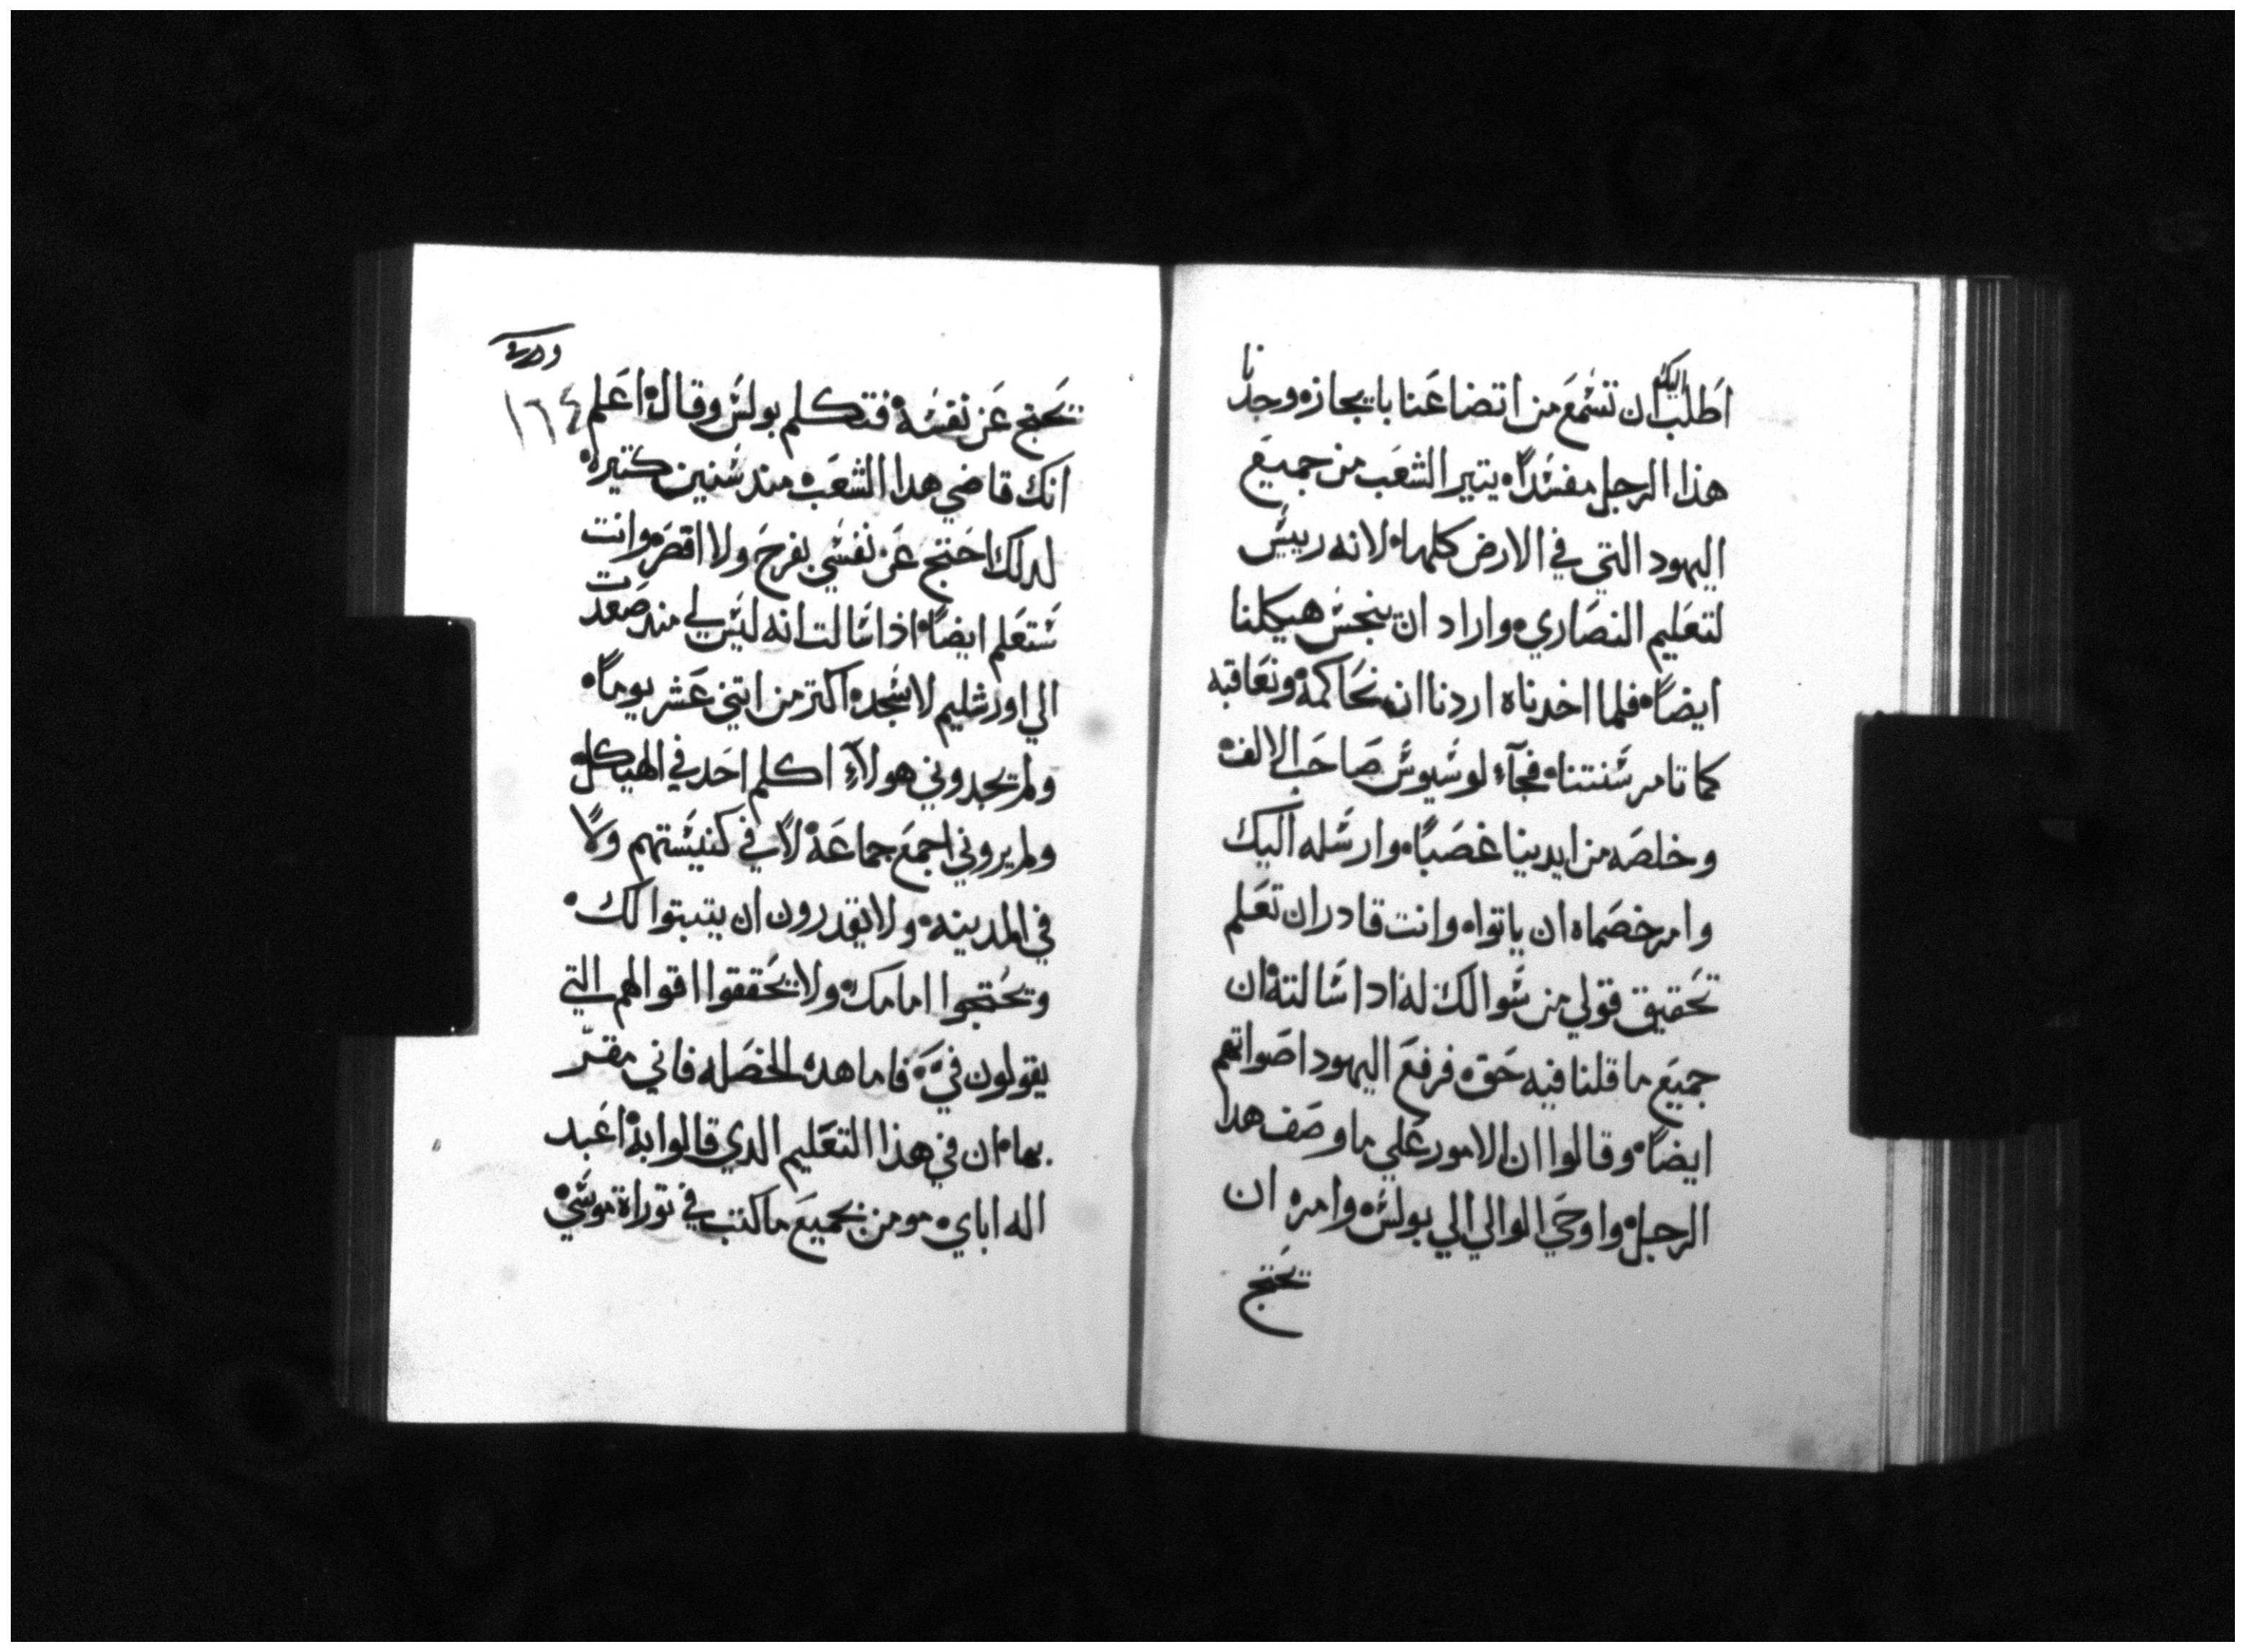 اطلب اليك ان تسمع من اتضاعنا بايجازه وجدنا
هذا الرجل مفسداه يتير الشعب من جميع
اليهود التي في الارض كلها ه لانه رييس
لتعليم النصاري ه واراد ان ينجس هيكلنا
ايضاه فلما اخدناه اردنا ان نحاكمه ونعاقبه
كما تامر سنتنا ه فجآء لوسيوس صاحب الالف
وخلصه من ايدينا غصباه وارسله اليك
وامر خصماه ان ياتواه وانت قادر ان تعلم
تحقيق قولي من سوالك له ادا سالته ان
جميع ما قلنا فيه حق ه فرفع اليهود اصواتهم
ايضاه وقالوا ان الامور علي ما وصف هدا
الرجل ه واوحي الوالي الي بولس ه وامره ان
يحتج
يحتج عن نفسه ه فتكلم بولس وقال ه اعلم
١٦٤
انك قاضي هدا الشعب ه مند سنين كتيره
لدلك احتج عن نفسي بفرح ولا اقصر ه وانت
ستعلم ايضاه اذا سالت انه ليس لي مند صعدت
الي اورشليم لاسجد ه اكتر من اتني عشر يوماه
ولم يجدوني هولآء اكلم احد في الهيكل
ولم يروني اجمع جماعة لا في كنيستهم ولا
في المدينه ه ولا يقدرون ان يتبتوا لك ه
ويحتجوا امامك ه ولا يحققوا اقوالهم التي
يقولون في ه فاما هده الخصله فاني مقر
بهاه ان في هذا التعليم الدي قالوا به ه اعبد
اله اباي ه مومن بجميع ما كتب في توراة موسي ه